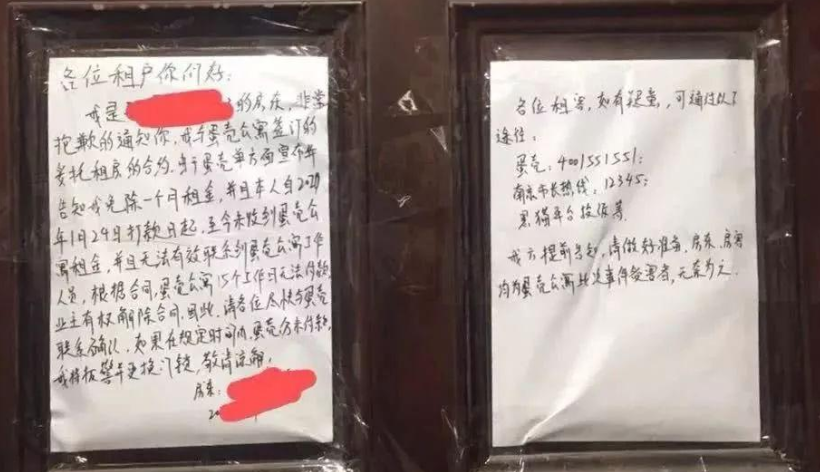 各位租户你们好：
我是 的房东，非常
抱歉的通知你，我与蛋壳公寓签订的
委托租房的合约，由于蛋壳单方面宣布并
告知我免除一个月租金，并且本人自2020
年1月24日打款日起，至今未收到蛋壳公
寓租金，并且无法有效联系到蛋壳公寓工作
人员，根据合同，蛋壳公寓15个工作日无法付款，
业主有权解除合同，因此，请各位尽快与蛋壳
联系确认，如果在规定时间内，蛋壳仍未付款，
我将报警并更换门锁，敬请谅解。
房东：
20
各位租客，如有疑虑，可通过以下
途径：
蛋壳：4001551551；
南京市长热线：12345；
黑猫平台投诉等
我方提前告知，请做好准备，房东、房客
均为蛋壳公寓此次事件受害者，无奈为之．